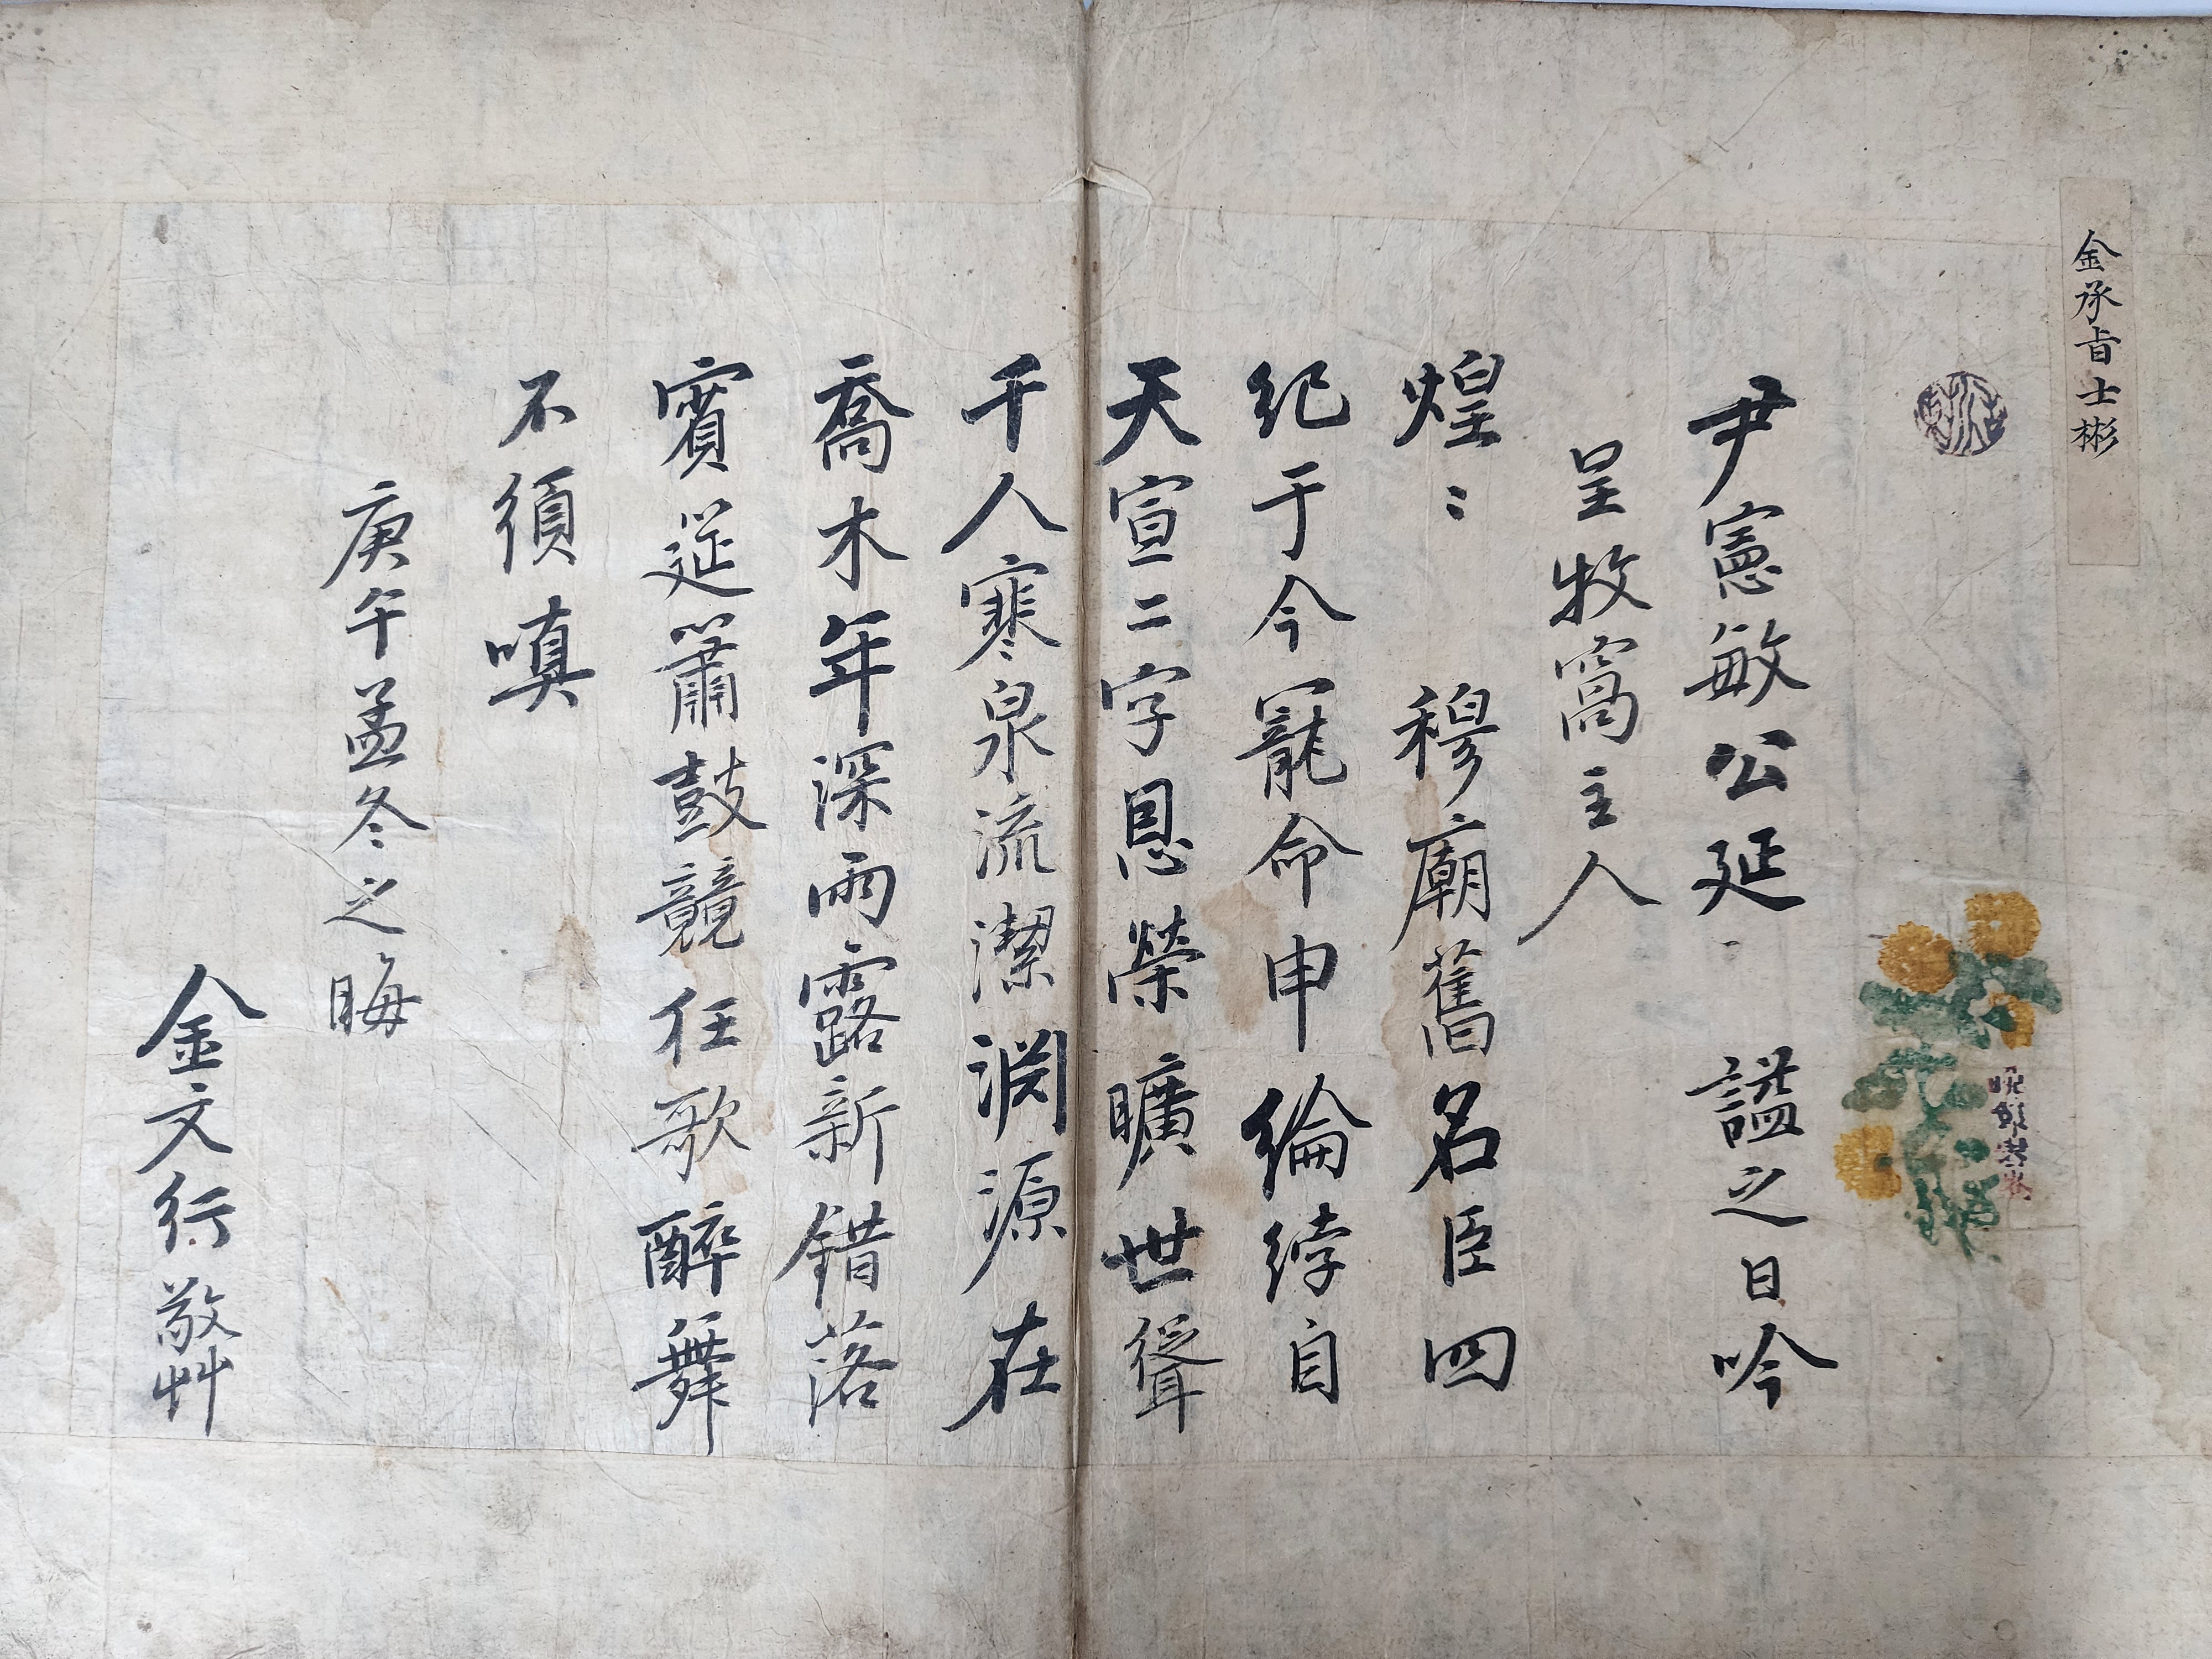 金承旨士彬
尹憲敏公延 謚之日吟
呈牧窩主人
煌〻 穆廟舊名臣四
紀于今寵命申綸綍自
天宣二字恩榮曠世聳
千人寒泉流潔淵源在
喬木年深雨露新錯落
賓筵簫鼓競任歌醉舞
不須嗔
庚午孟冬之晦
金文行敬艸